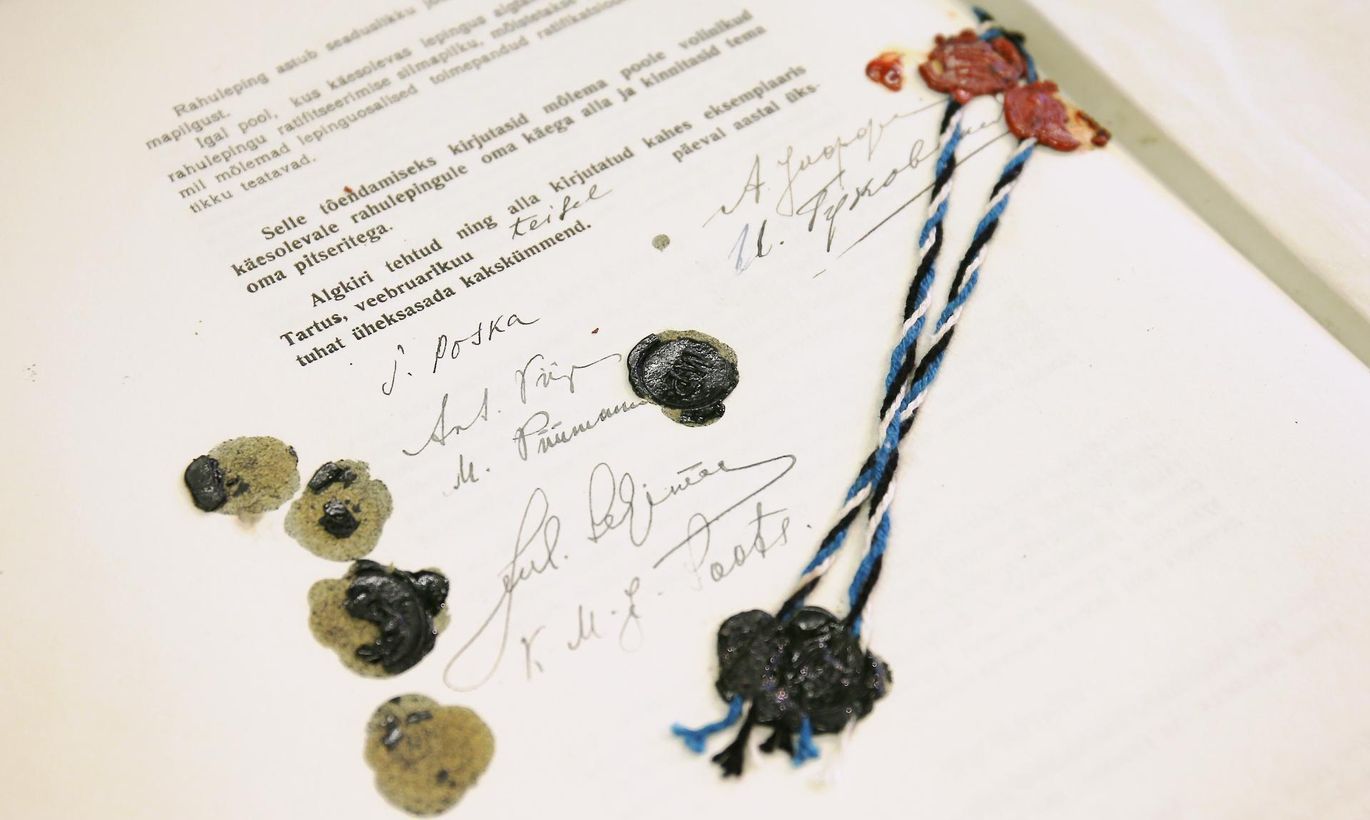 Rahuleping astub seaduslikku jõ
mapilgust.
Igal pool, kus käesolevas lepingus algat
rahulepingu ratifitseerimise silmapilku, mõistetakse
mil mõlemad lepinguosalised toimepandud ratifikatsioon
tikku teatavad.
Selle tõendamiseks kirjutasid mõlema poole volinikud
käesolevale rahulepingule oma käega alla ja kinnitasid tema
oma pitseritega.
Algkiri tehtud ning alla kirjutatud kahes eksemplaaris
Tartus, veebruarikuu teisel päeval aastal üks-
tuhat üheksasada kakskümmend.
J. Poska
Ant. Piip
M. Püümann
Jul. Seljamaa
A. Иоффе
И. Гуковский